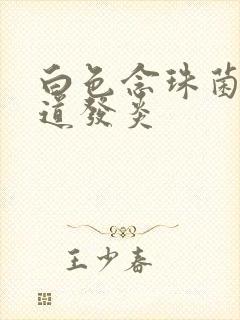 白色念珠菌
道發炎
王少春